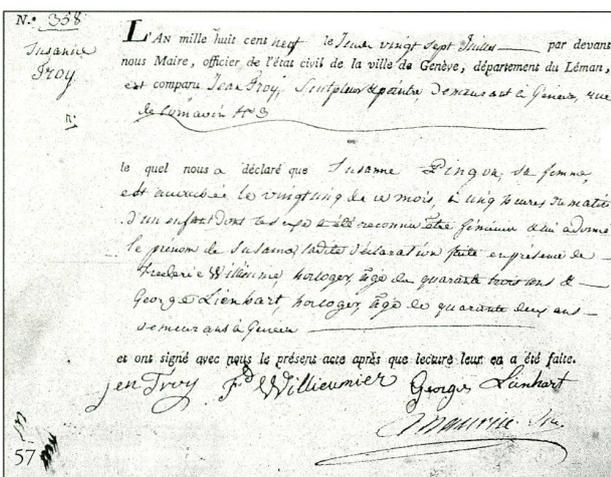 N.º 358
Susanne
Troy
L'AN mille huit cent neuf le Jeudi vingt sept Juillet par devant
nous Maire, officier de l'état civil de la ville de Genève, département du Léman,
est comparu Jean Troy, Sculpteur & peintre demeurant à Genève, rue
de Cornavin Nº 3
le quel nous a déclaré que Susanne Pingon, sa femme,
est accouchée le vingt cinq de ce mois, à cinq heures du matin
d'un enfant dont le sexe a été reconnu être féminin & lui a donné
le prénom de Susanne ladite déclaration faite en présence de
Frederic Willieumier, horloger, âgé de quarante trois ans &
George Lienhart, horloger, âgé de quarante deux ans
demeurans à Geneve
et ont signé avec nous le présent acte après que lecture leur en a été faite.
jen Troy Fd Willieumier Georges Lienhart
Maurice
57